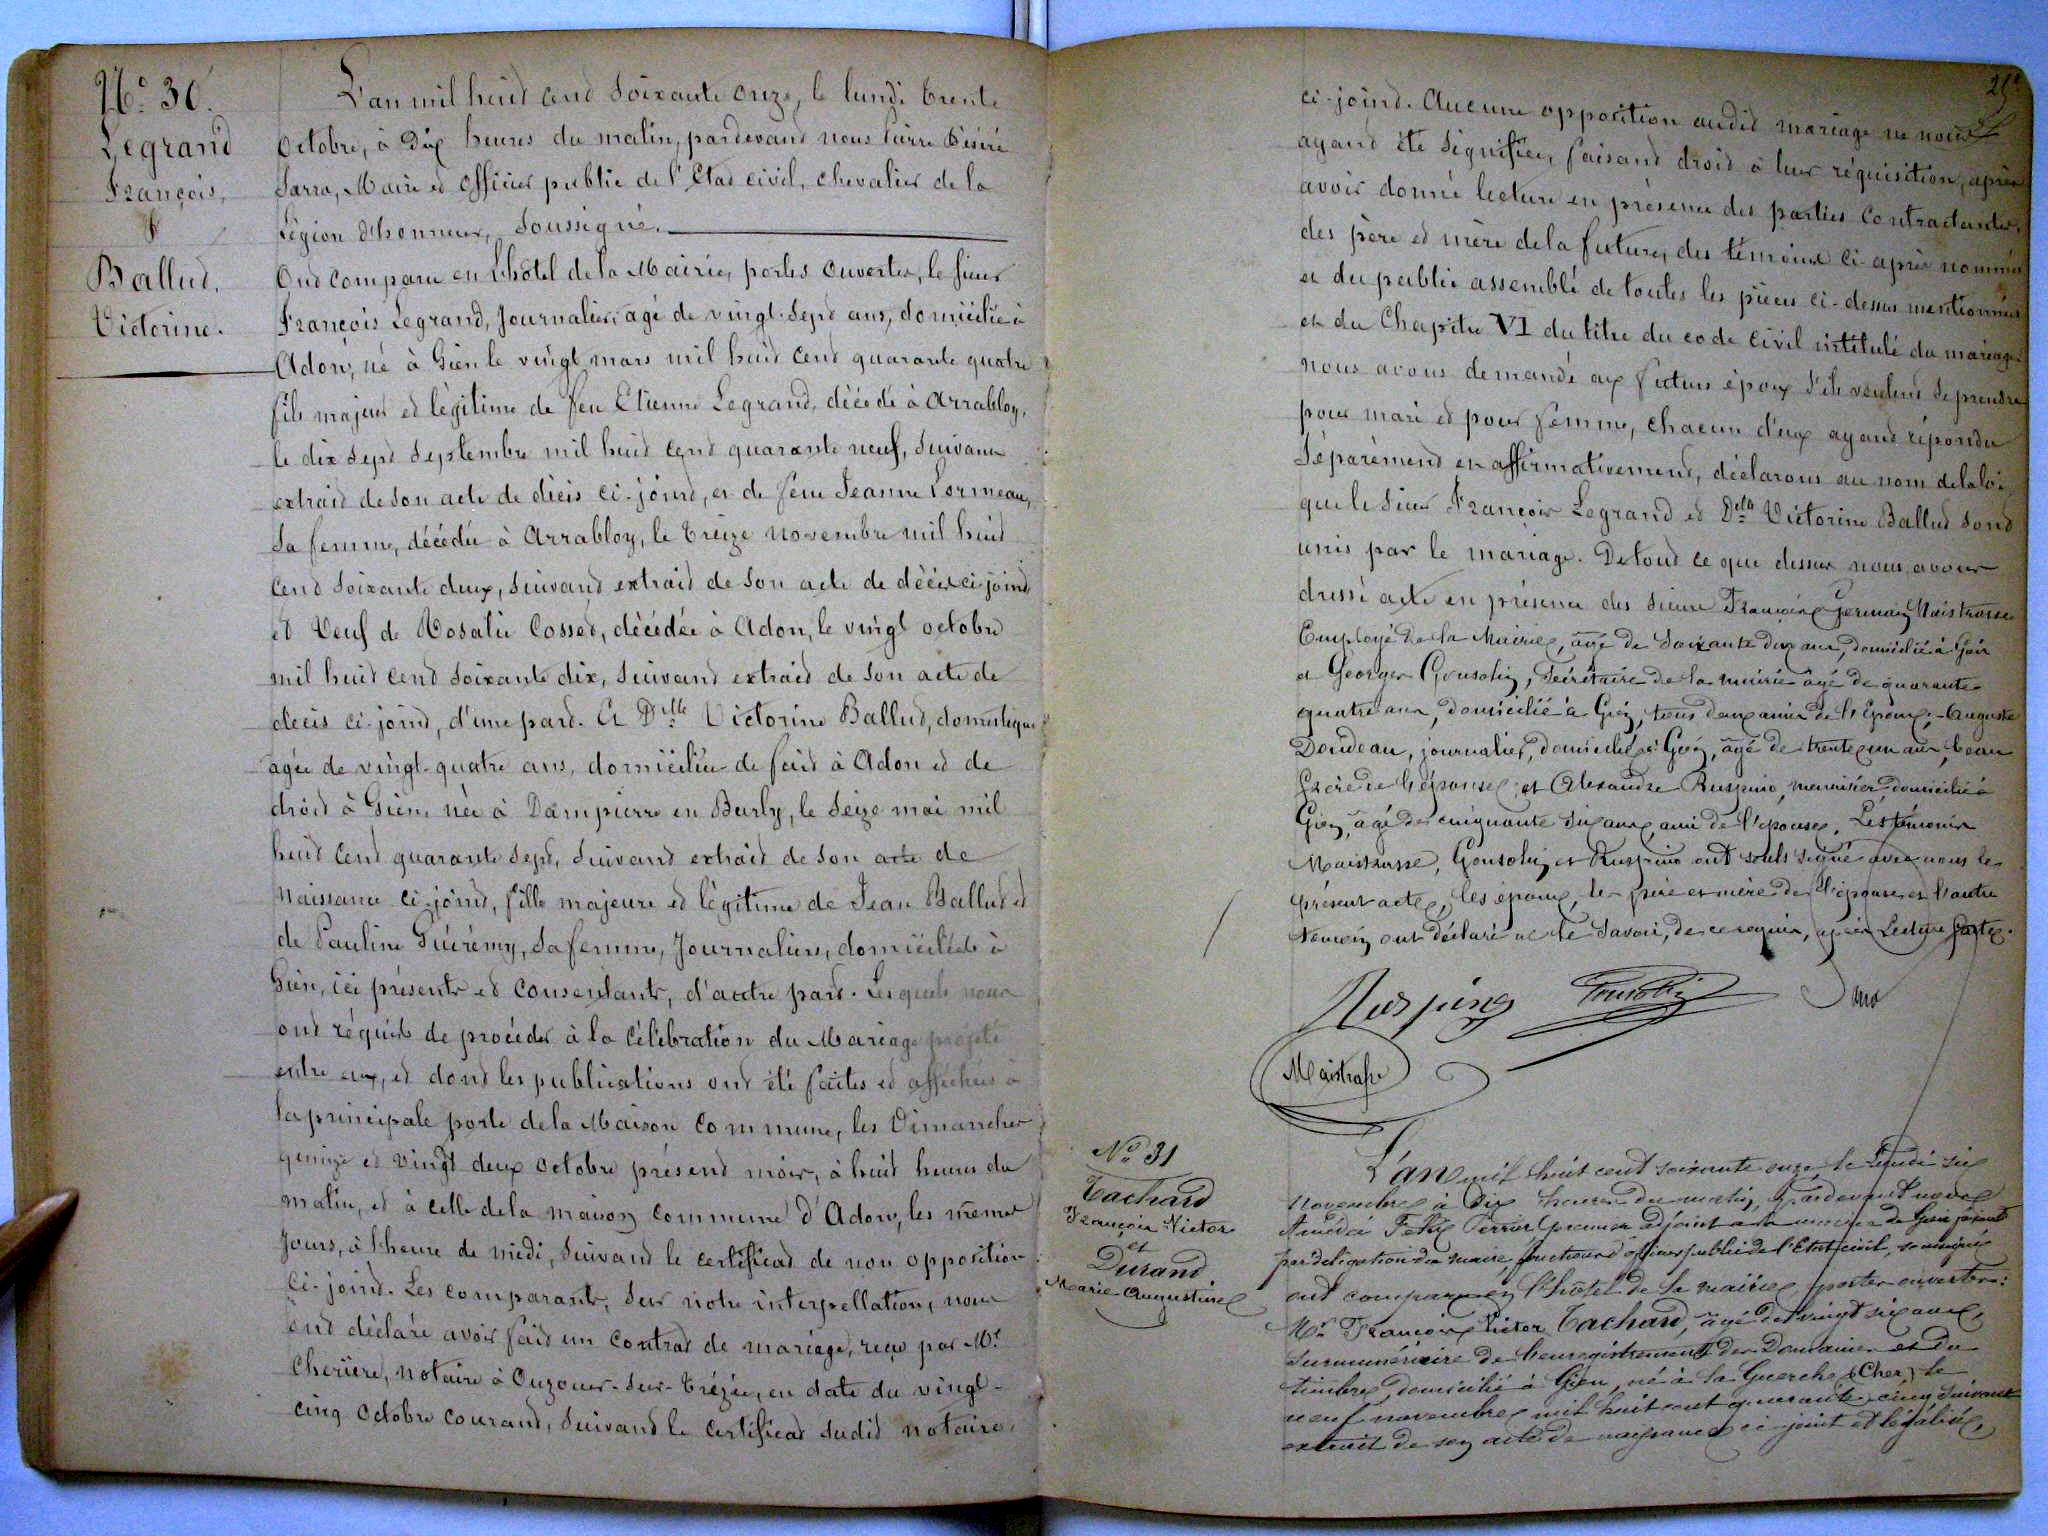 N.° 30.
Legrand
François,
&
Ballud,
Victorine.
L'an mil huit cent soixante onze, le lundi trente
Octobre, à dix heures du matin, pardevant nous Pierre Désiré
Sarra, Maire et Officier public de l'Etat civil, chevalier de la
Légion d'honneur, soussigné.
Ont comparu en l'hôtel de la Mairie, portes ouvertes, le sieur
François Legrand, Journalier, agé de vingt-sept ans, domicilié à
Adon, né à Gien le vingt mars mil huit cent quarante quatre
fils majeur et légitime de feu Etienne Legrand, décédé à Arrabloy,
le dix sept Septembre mil huit cent quarante neuf, suivant
extrait de son acte de décès ci-joint, et de feue Jeanne Lormeau,
sa femme, décédée à Arrabloy, le treize novembre mil huit
cent soixante deux, suivant extrait de son acte de décès ci-joint
et Veuf de Rosalie Cosset, décédée à Adon, le vingt octobre
mil huit cent soixante dix, suivant extrait de son acte de
décès ci-joint, d'une part. Et Delle Victorine Ballud, domestique
agée de vingt-quatre ans, domiciliée de fait à Adon et de
droit à Gien, née à Dampierre en Burly, le seize mai mil
huit cent quarante sept, suivant extrait de son acte de
naissance ci-joint, fille majeure et légitime de Jean Ballud et
de Pauline Guérémy, sa femme, Journaliers, domiciliés à
Gien, ici présents et consentants, d'autre part. Lesquels nous
ont réquis de procéder à la célébration du Mariage projeté
entre eux, et dont les publications ont été faites et affichées à
la principale porte de la Maison Commune, les Dimanches
quinze et vingt deux octobre présent mois, à huit heures du
matin, et à celle de la maison commune d'Adon, les mêmes
jours, à l'heure de midi, suivant le certificat de non opposition
ci-joint. Les comparants, sur notre interpellation, nous
ont déclaré avoir fait un contrat de mariage, reçu par Me
Cherière, notaire à Ouzouer-sur-Trézée, en date du vingt-
cinq octobre courant, suivant le certificat dudit notaire,
25
ci-joint. Aucune opposition audit mariage ne nous
ayant été signifiée, faisant droit à leur réquisition, après
avoir donné lecture en présence des parties contractantes,
des père et mère de la future, des témoins ci-après nommés
et du public assemblé de toutes les pièces ci-dessus mentionnées
et du Chapitre VI du titre du code civil intitulé du mariage
nous avons demandé aux futurs époux s'ils veulent se prendre
pour mari et pour femme, chacun d'eux ayant répondu
séparément et affirmativement, déclarons au nom de la loi
que le sieur François Legrand et Delle Victorine Ballud sont
unis par le mariage. De tout ce que dessus nous avons
dressé acte en présence des sieurs François Germain Maistrasse
Employé de la Mairie, âgé de soixante dix ans, domicilié à Gien
et Georges Gonsolin, Secrétaire de la mairie âgé de quarante
quatre ans, domicilié à Gien, tous deux amis de l'Epoux, Auguste
Doudeau, journalier, domicilié à Gien, âgé de trente un ans, beau
frère de l'épouse, et Alexandre Ruspino, menuisier domicilié à
Gien, âgé de cinquante six ans, ami de l'épouse. Les témoins
Maistrasse, Gonsolin et Ruspino ont seuls signé avec nous le
présent acte, les époux, les père et mère de l'épouse et l'autre
témoin ont déclaré ne le savoir, de ce requis, après Lecture faite.
Ruspino Gonsolin Sarra
Maistrasse
N.° 31
Tachard
François Victor
et
Durand
Marie Augustine
L'an mil huit cent soixante onze le Lundi six
novembre à dix heures du matin, pardevant nous
Amédé Félix Perrier premier adjoint à la mairie de Gien
par délégation du maire, fonctions d'officier public de l'Etat civil, soussigné
ont comparu en l'hôtel de la mairie, portes ouvertes:
Mr François Victor Tachard, âgé de vingt six ans,
Surnuméraire de l'enregistrement des Domaines et du
timbre, domicilié à Gien, né à la Guerche (Cher) le
neuf novembre mil huit cent quarante cinq suivant
extrait de son acte de naissance ci-joint et légalisé,